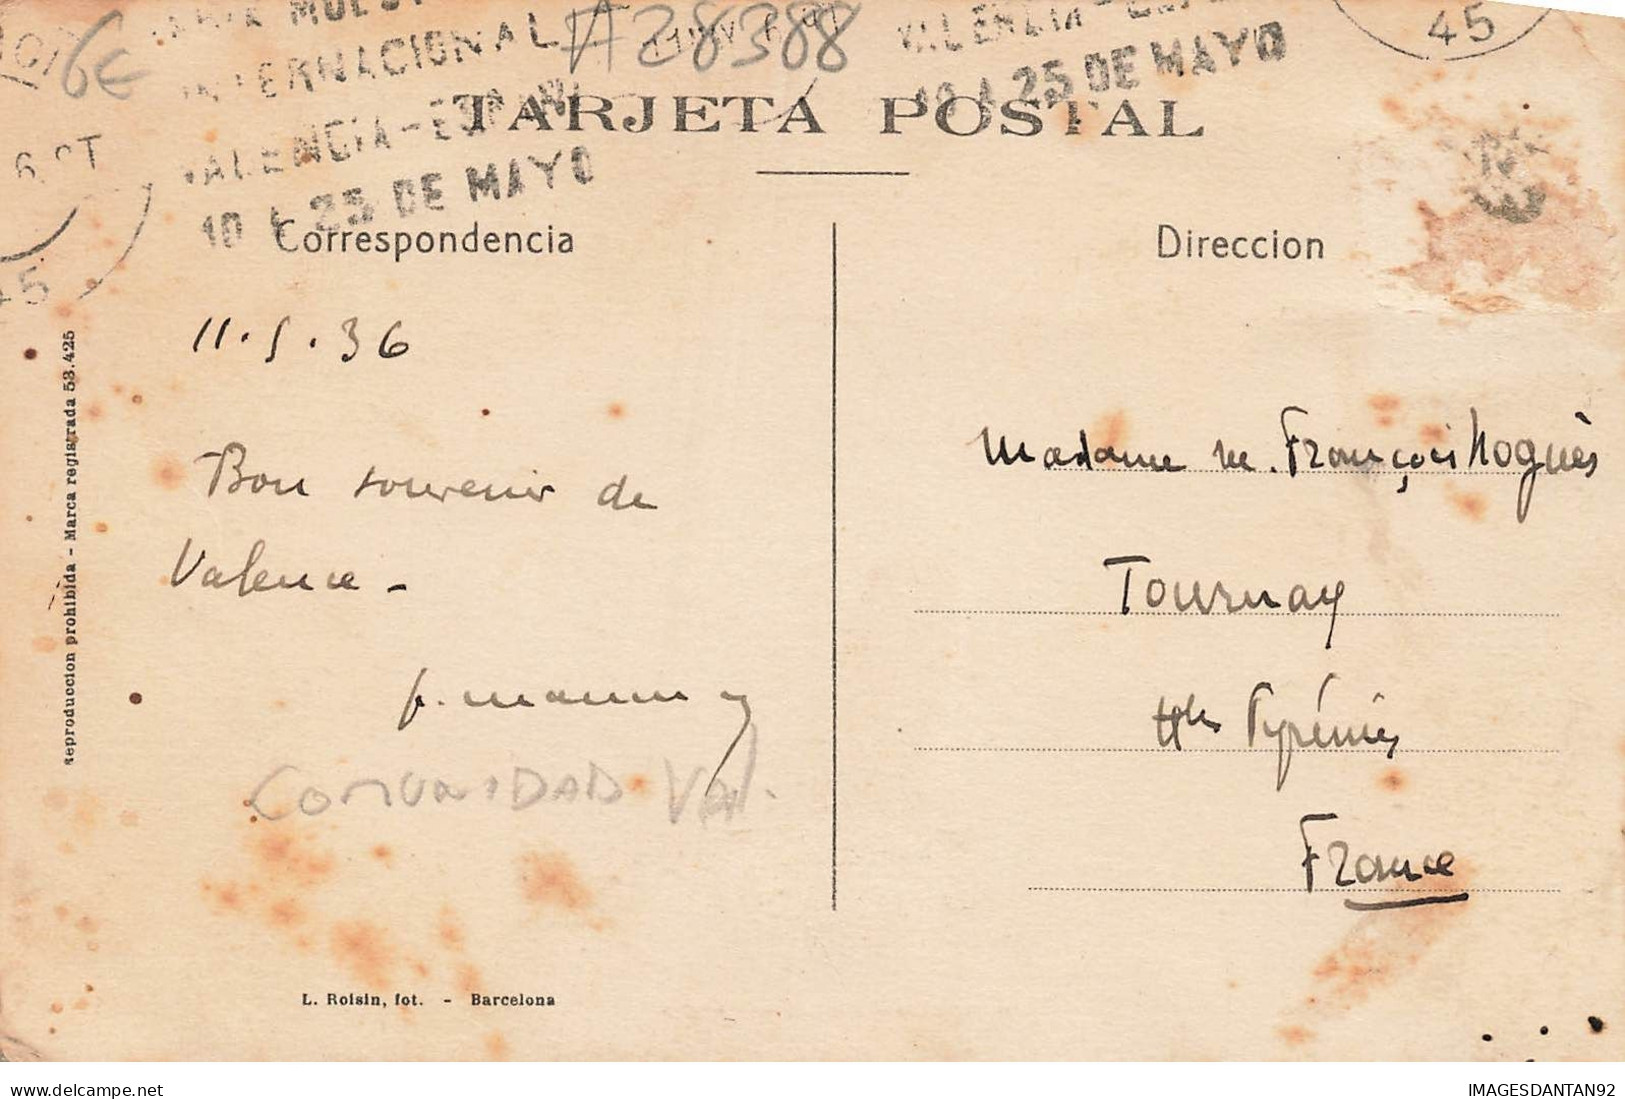 6€
A28388
INTERNACIONAL
VALENCIA-ESPAÑA
10 A 25 DE MAYO
VALENCIA-ESPA
10 A 25 DE MAYO
45
45
TARJETA POSTAL
Correspondencia
Direccion
11.5.36
Bon souvenir de
Valence -
COMUNIDAD Val.
Madame M. François Noguès
Tournay
Htes Pyrénées
France
Reproduccion prohibida - Marca registrada 53.425
L. Roisin, fot. - Barcelona
delcampe.net
IMAGESDANTAN92